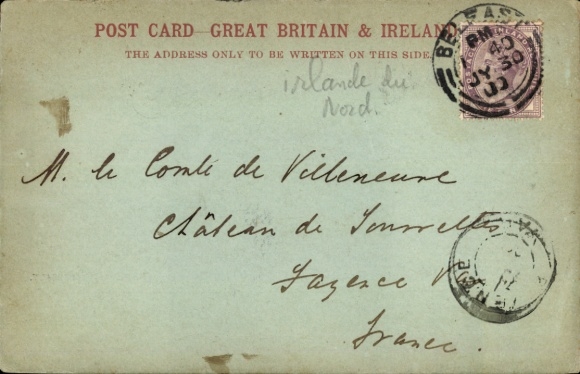 POST CARD—GREAT BRITAIN & IRELAND
THE ADDRESS ONLY TO BE WRITTEN ON THIS SIDE.
BELFAST
PM
40
JY 30
00
irlande du
Nord.
M. le Comte de Villeneuve
Château de Tourrelles
Fayence V.
France.
FAYENCE